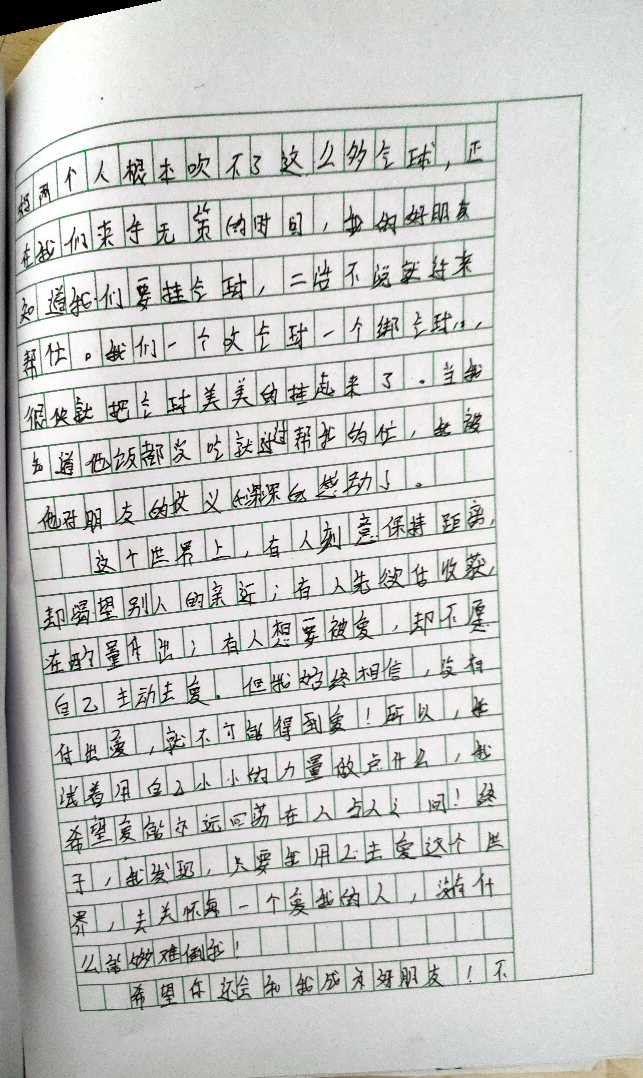 两个人根本吹不了这么多气球，正
在我们束手无策的时间，我的好朋友
知道我们要挂气球，二话不说就过来
帮忙。我们一个吹气球一个绑气球，
很快就把气球美美的挂起来了。当我
知道他饭都没吃就过帮我的忙，我被
他对朋友的仗义深深的感动了。
这个世界上，有人刻意保持距离，
却渴望别人的亲近；有人先欲估收获，
在酌量付出；有人想要被爱，却不愿
自己主动去爱。但我始终相信，没有
付出爱，就不可能得到爱！所以，我
试着用自己小小的力量做点什么，我
希望爱能永远回荡在人与人之间！终
于，我发现，只要我用心去爱这个世
界，去关怀每一个爱我的人，没有什
么能够难倒我！
希望你还会和我成为好朋友！不